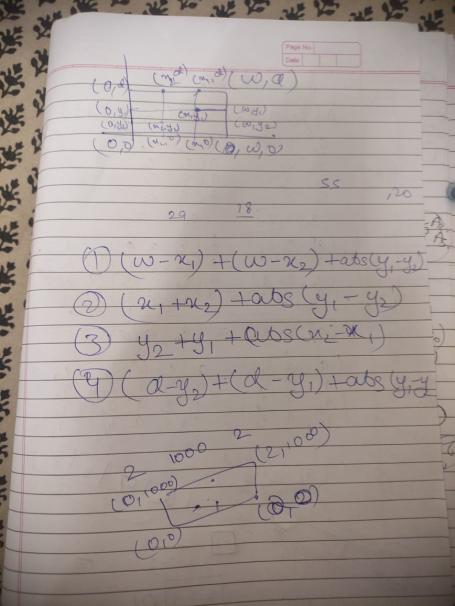 Page No.
Date
(0,d) (x₁,d) (x₁,d) (w,d)
(0,y₁) (x₁,y₁) (w,y₁)
(0,y₂) (x₁,y₁) (w,y₂)
(0,0) (x₁,0) (x₁,0) w,0)
SS ,20
29 18
① (w-x₁) + (w-x₂) + abs(y₁-y₂)
② (x₁+x₂) + abs(y₁-y₂)
③ y₂+y₁ + abs(x₂-x₁)
④ (d-y₂)+(d-y₁)+abs(y₁-y
2 1000 2
(0,1000) (2,1000)
(0,0)